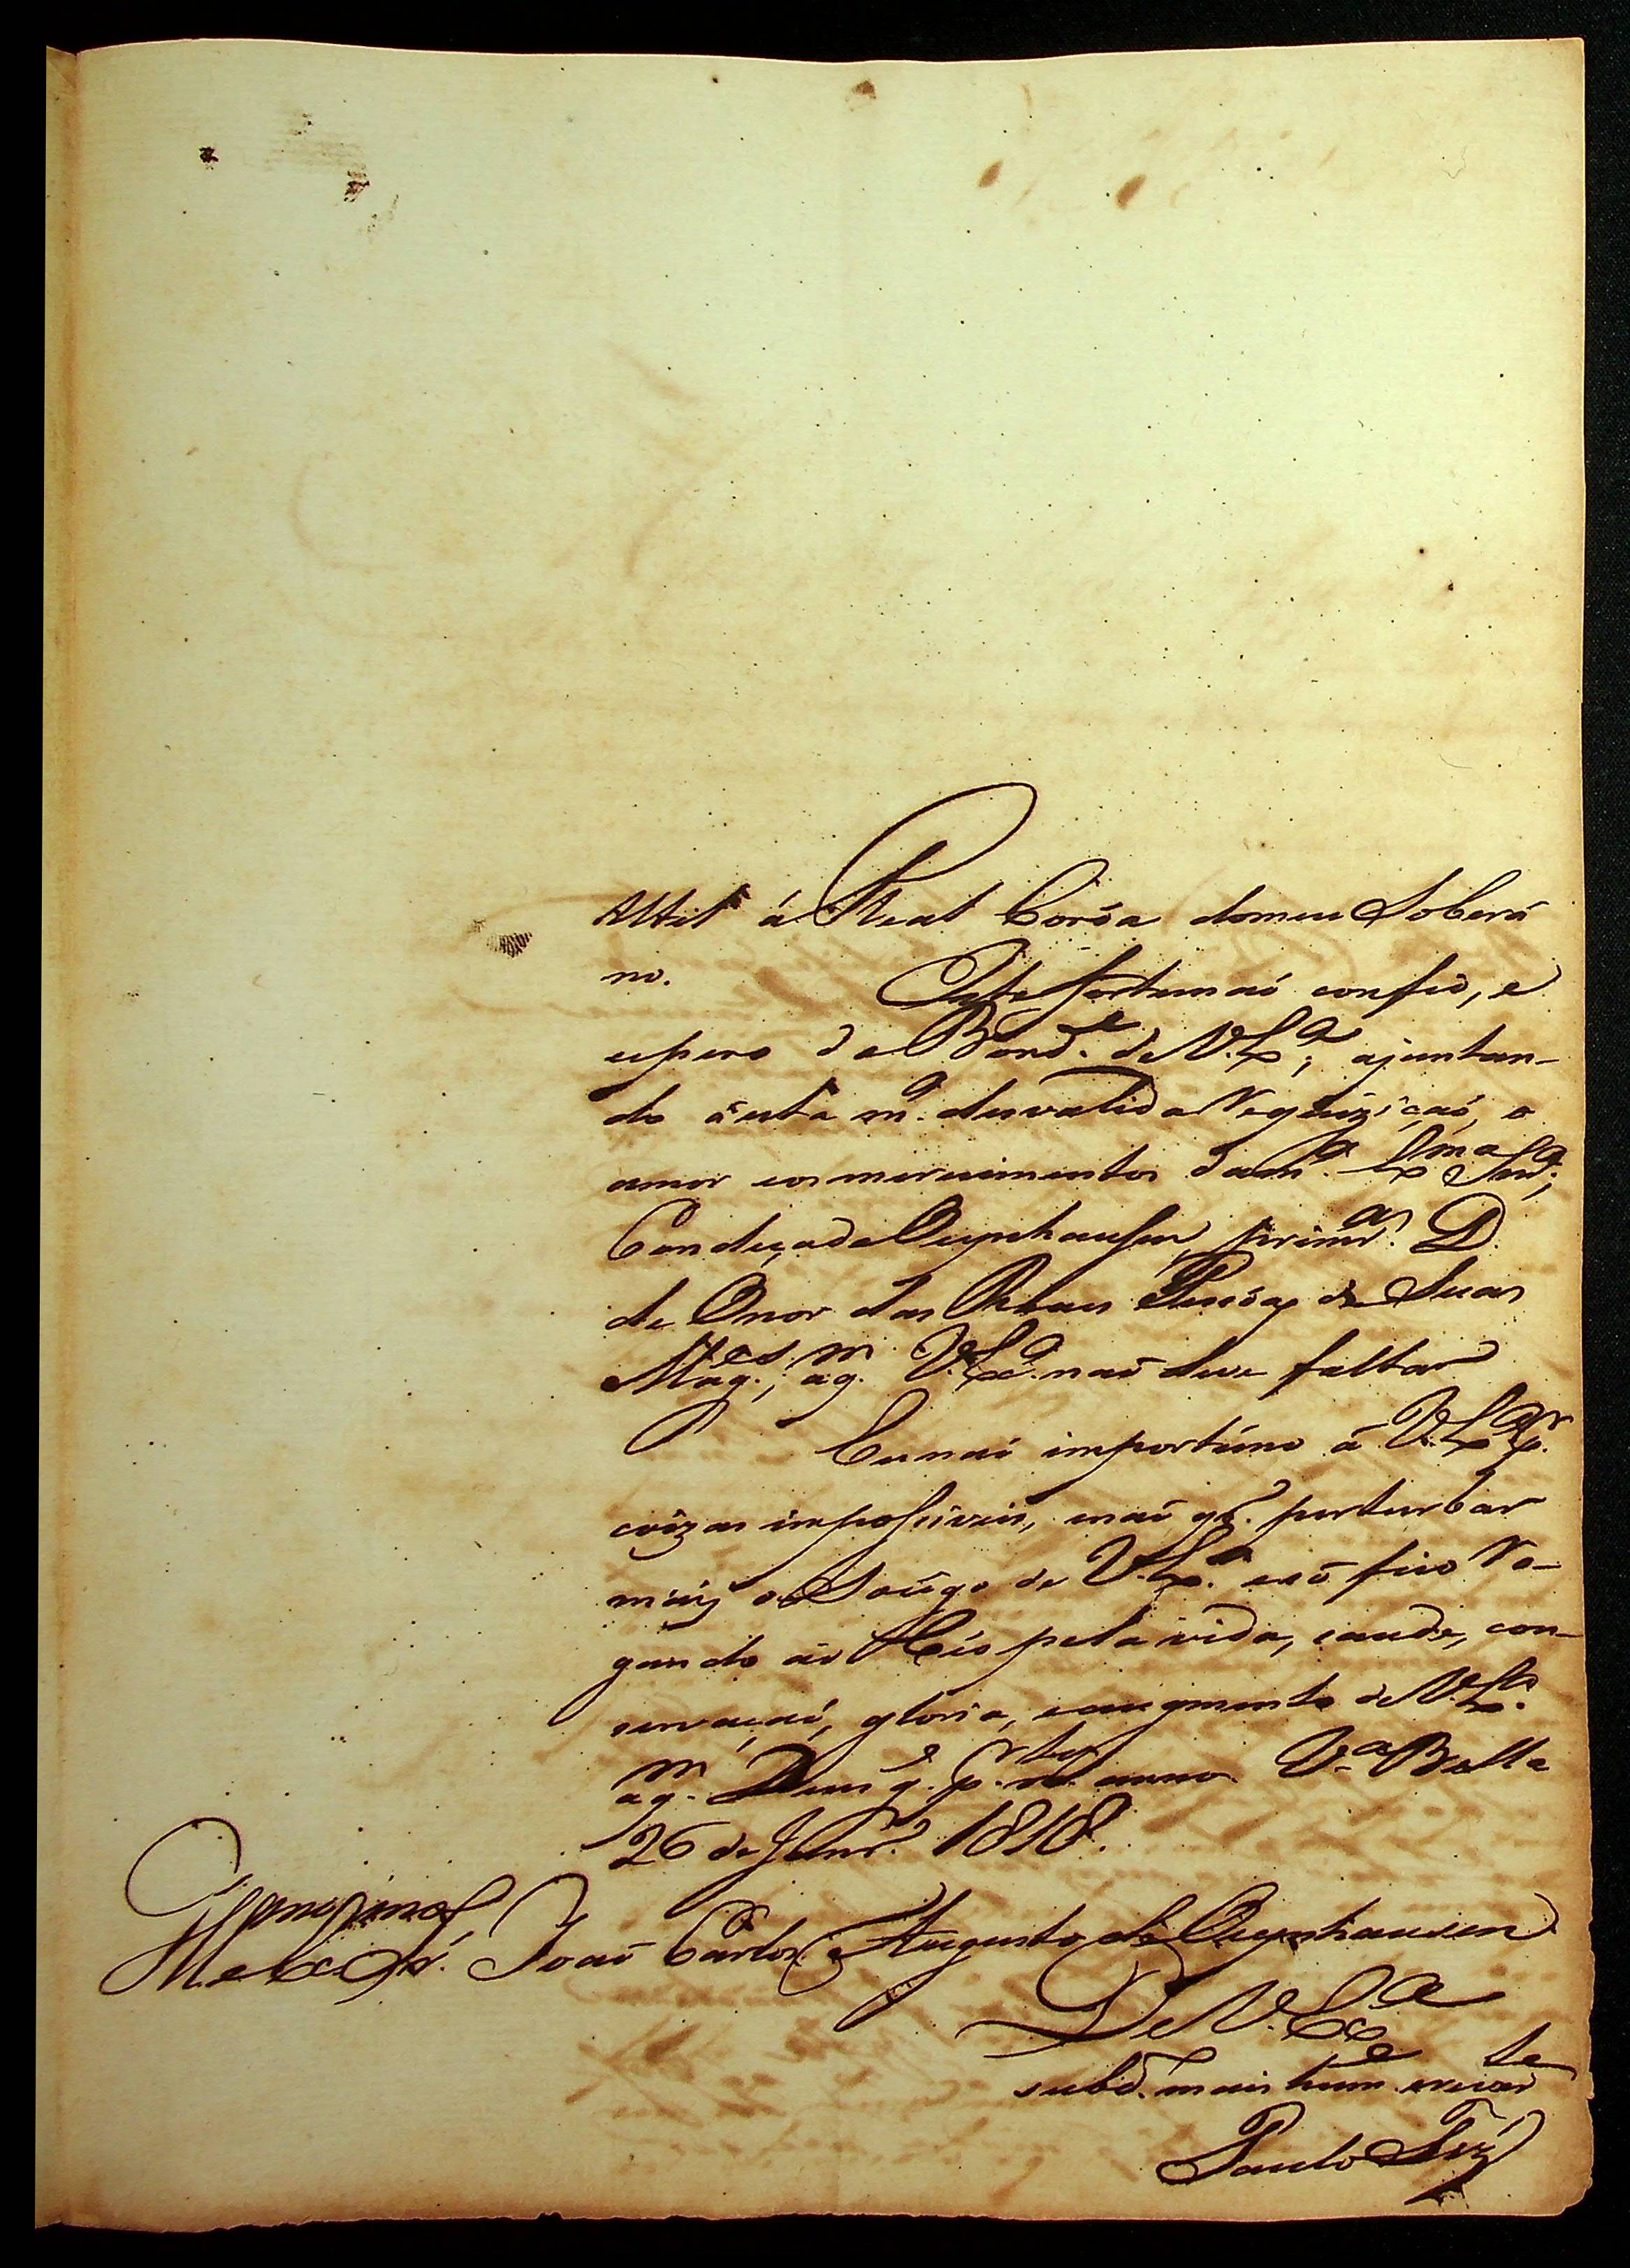 Util á Real Corôa domeu Soberá
no. Isto fortemaõ confio, e
espero da Bond.e de V. Ex.a; ajuntan-
do á esta m.a desvalida Requiziçaõ, o
amor eos merecimentos dam.a Ex.ma Snr.a;
Condeça de Oeynhausen, prim.ra D.
de Onor das Reaes Pesôas de Suas
Mag.es; aq.m V. Ex.a naõ deve faltar
Eu naõ importúno á V. Ex.a p.r
coizas impossiveis, enaõ q.ro perturbar
máis o Socêgo de V. Ex.a esó fico Ro-
gando áo Céo pela vida, saude, con-
servaçaõ, gloria, eaugmento de V. Ex.a
aq.m Deus g.e p.r m.tos annos. V.a Bella
26 de Janr.o 1818.
Ill.mo e Ex.mo Sñr. Joaõ Carlos Augusto de Oeynhausen
De V. Ex.a
subd.o mais hum.e
Paulo